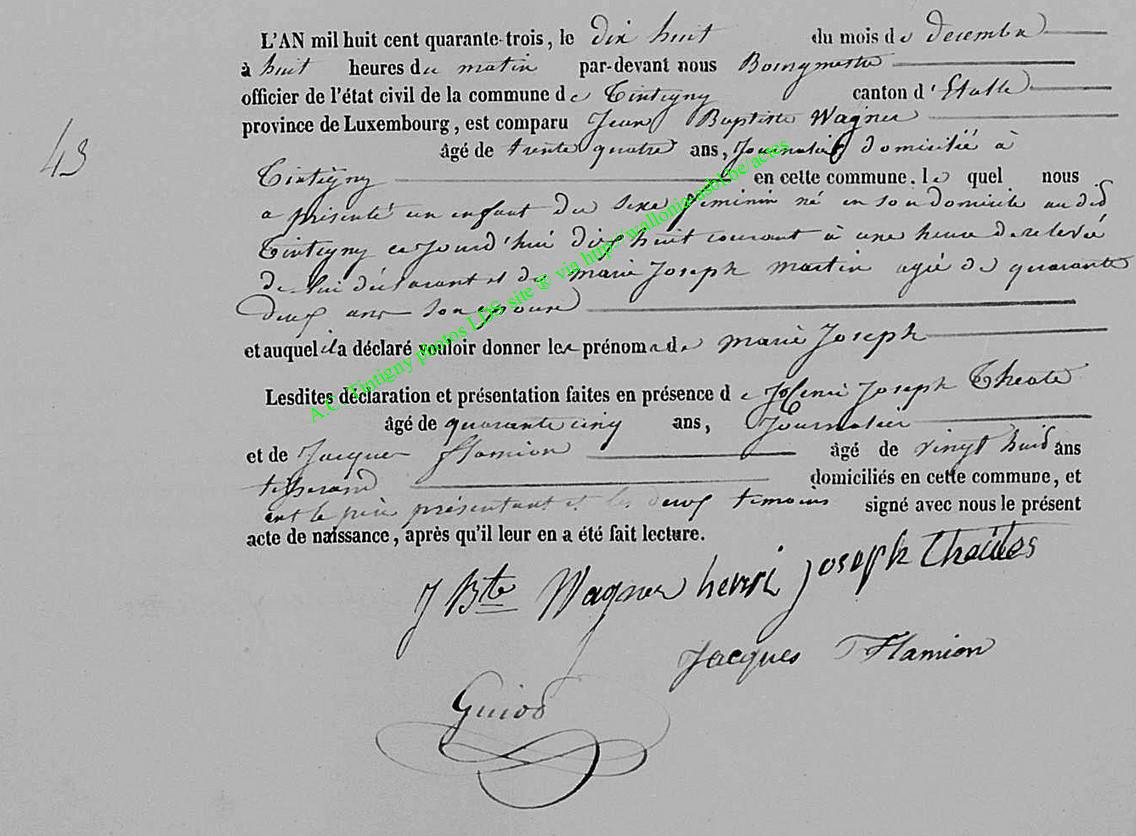 L'AN mil huit cent quarante-trois, le dix huit du mois de decembre
à huit heures du matin par-devant nous Bourgmestre
officier de l'état civil de la commune de Tintigny canton d'Etalle
province de Luxembourg, est comparu Jean Baptiste Wagner
43
âgé de trente quatre ans, Journalier domicilié à
Tintigny en cette commune. le quel nous
a présenté un enfant du sexe feminin né en son domicile audit
Tintigny ce jourd'hui dix huit courant à une heure de relevée
de lui déclarant et de marie Joseph martin agée de quarante
deux ans son epouse
et auquel il a déclaré vouloir donner les prénoms de marie Joseph
Lesdites déclaration et présentation faites en présence de henri Joseph
âgé de quarante cinq ans, Journalier
et de Jacques flamion âgé de vingt huit ans
tisserand domiciliés en cette commune, et
ont le père présentant et les deux temoins signé avec nous le présent
acte de naissance, après qu'il leur en a été fait lecture.
J Bte Wagner henri joseph
Jacques Flamion
A.C. Tintigny photos LDS site @ via http://wallonia-asbl.be/actes